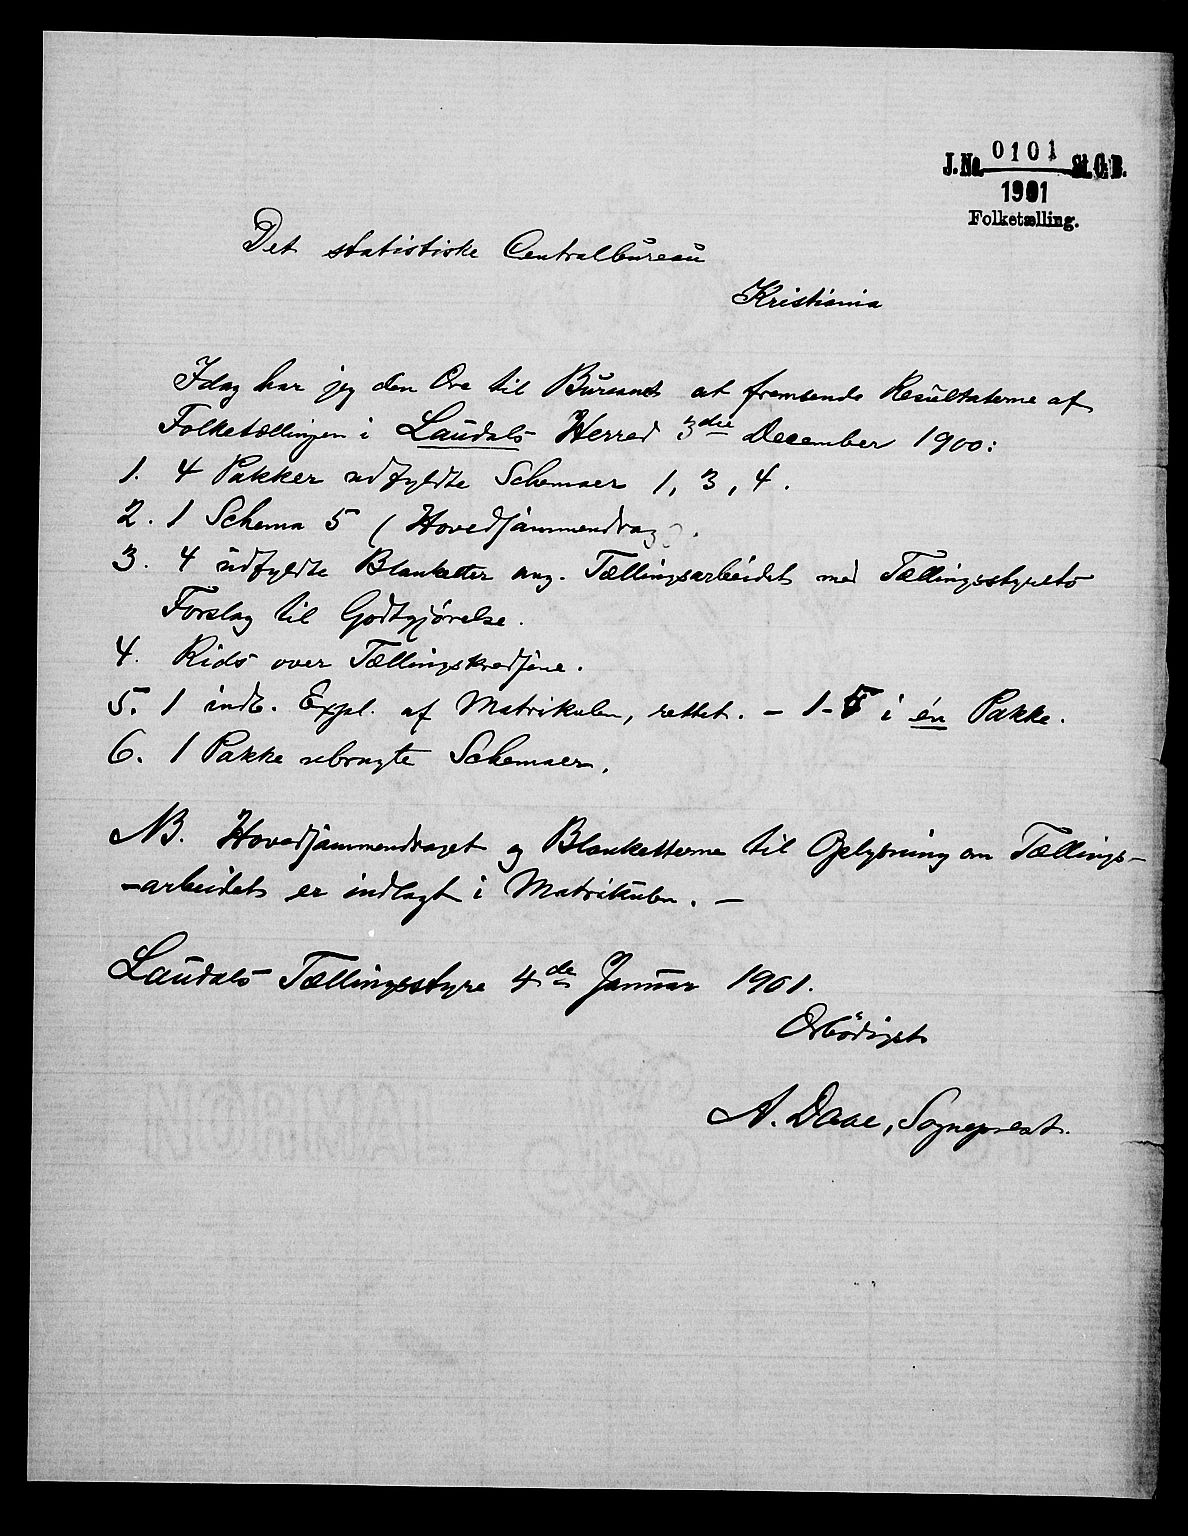 J. No. 0101 St. C. B.
1901
Folketælling.
Det statistiske Centralbureau
Kristiania
Idag har jeg den Ære til Bureauet at fremsende Resultaterne af
Folketællingen i Laudals Herred 3die December 1900:
1. 4 Pakker udfyldte Schemaer 1, 3, 4.
2. 1 Schema 5 (Hovedsammendrag).
3. 4 udfyldte Blanketter ang. Tællingsarbeidet med Tællingsstyrets
Forslag til Godtgjørelse.
4. Rids over Tællingskredsene.
5. 1 indb. Expl. af Matrikulen, rettet. – 1-5 i én Pakke.
6. 1 Pakke ubrugte Schemaer.
NB. Hovedsammendraget og Blanketterne til Oplysning om Tællings-
-arbeidet er indlagt i Matrikulen. –
Laudals Tællingsstyre 4de Januar 1901.
Ærbødigst
A. Daae, Sogneprest.